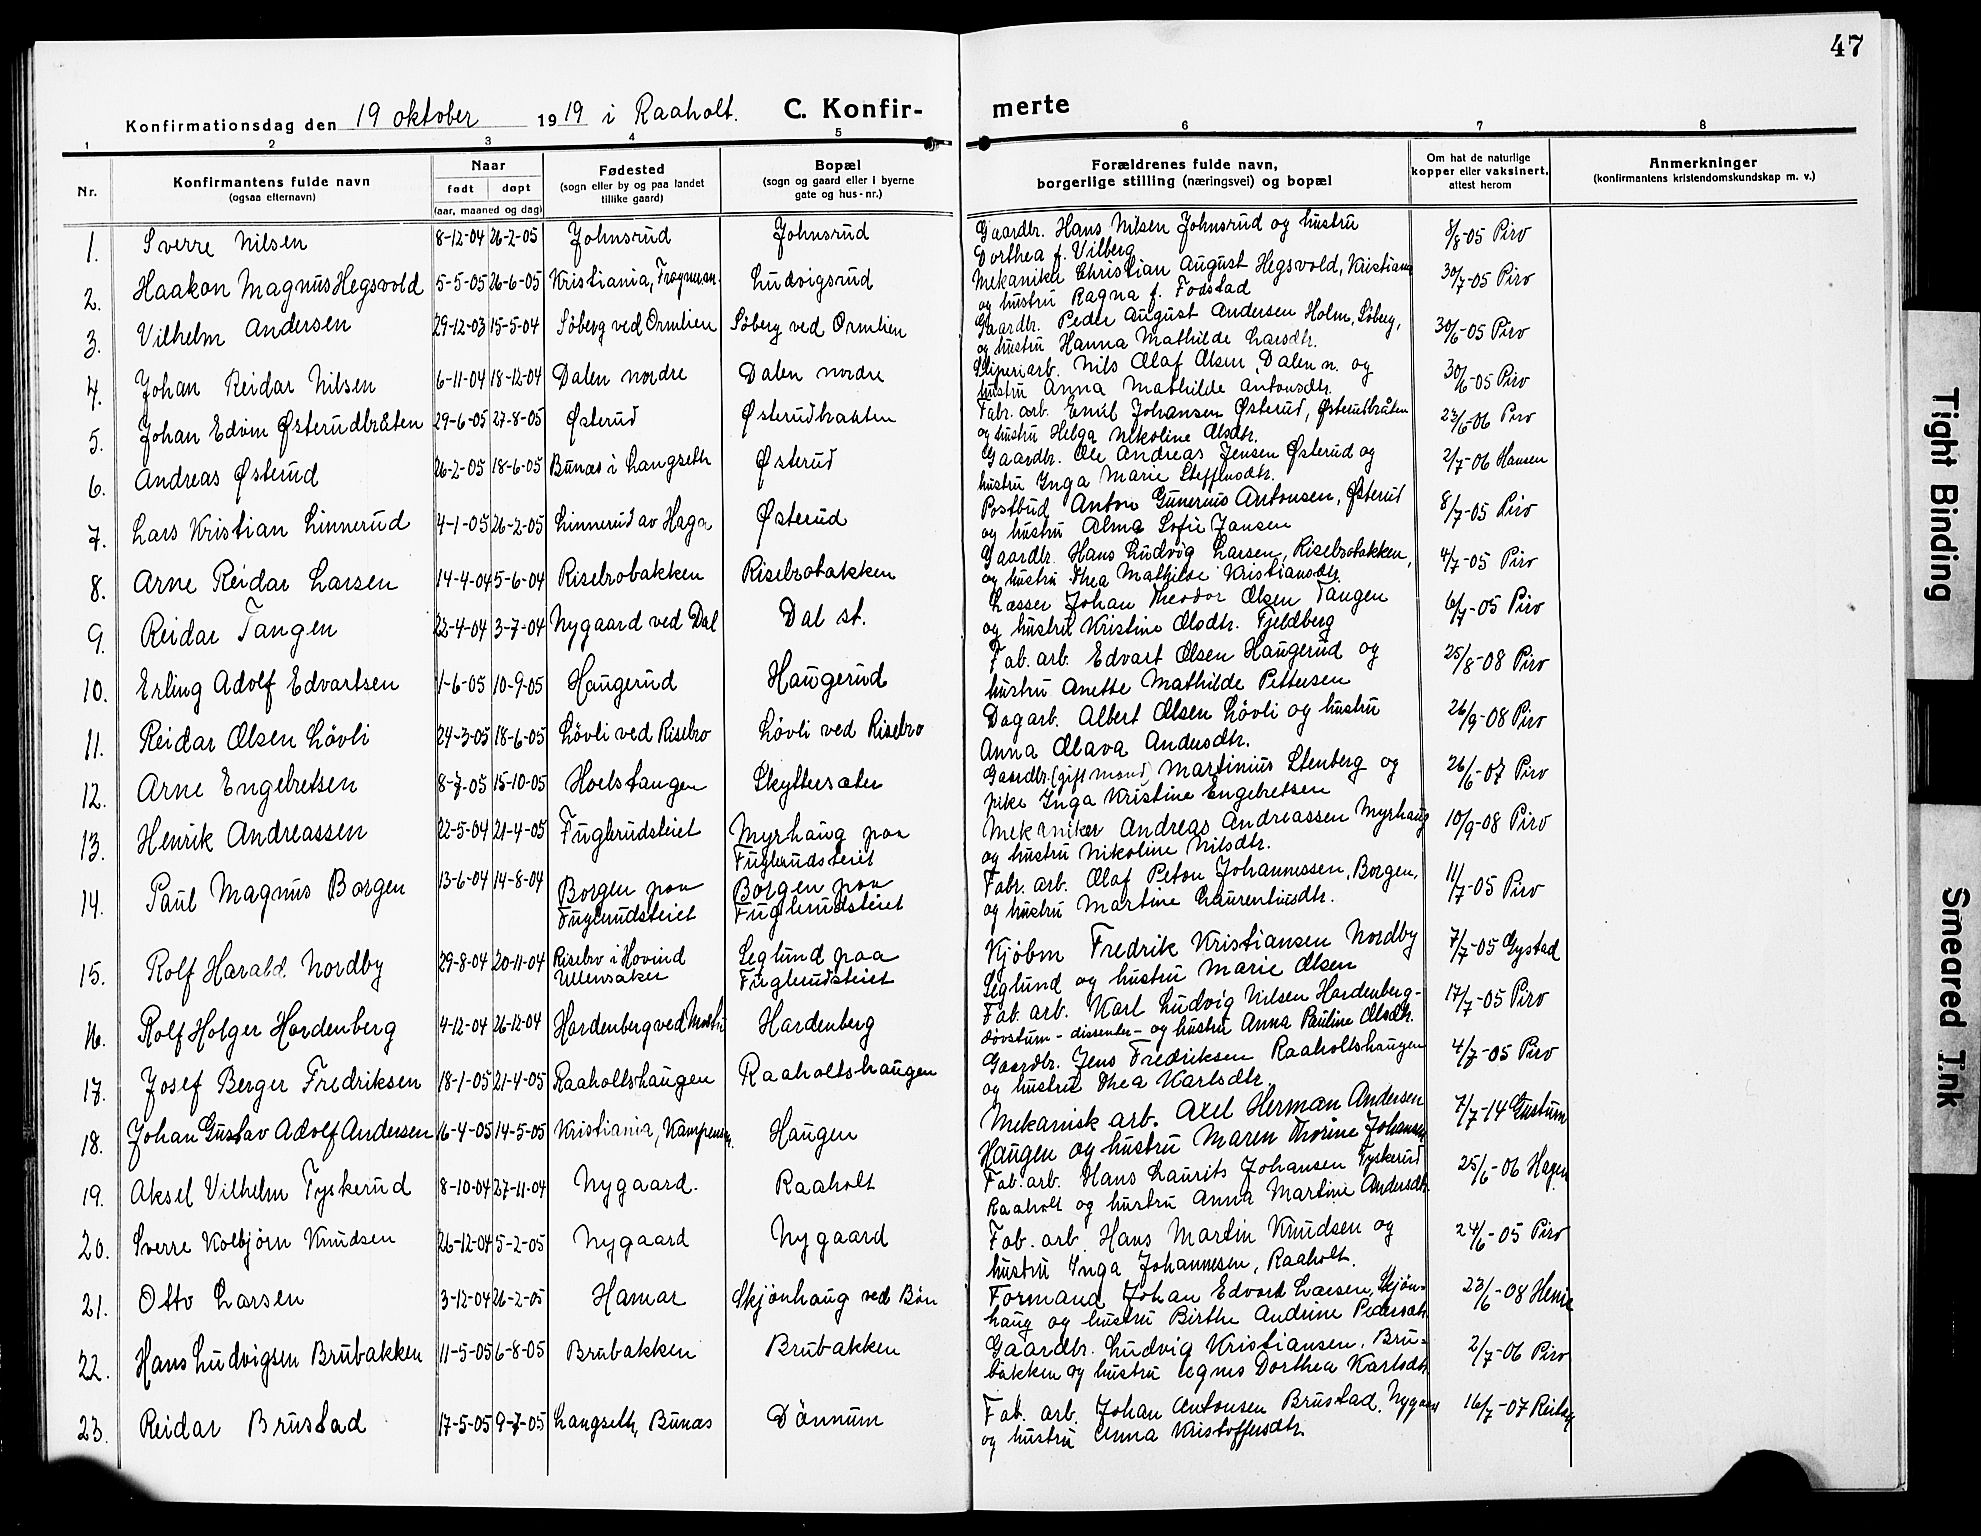 47
Konfirmationsdag den 19 oktober 1919 i Raaholt. C. Konfir- merte
1 2 3 4 5 6 7 8
Nr. Konfirmantens fulde navn (ogsaa efternavn) Naar født døpt (aar, maaned og dag) Fødested (sogn eller by og paa landet tillike gaard) Bopæl (sogn og gaard eller i byerne gate og hus-nr.) Forældrenes fulde navn, borgerlige stilling (næringsvei) og bopæl Om hat de naturlige kopper eller vaksinert, attest herom Anmerkninger (konfirmantens kristendomskundskap m. v.)
1. Sverre Nilsen 8-12-04 26-2-05 Johnsrud Johnsrud Gaardbr. Hans Nilsen Johnsrud og hustru 8/8-05 Piro
Dorthea f. Vilberg
2. Haakon Magnus Hegsvold 5-5-05 26-6-05 Kristiania, Frogneran. Ludvigsrud Mekaniker Christian August Hegsvold, Kristiania 30/7-05 Piro
og hustru Ragna f. Fodstad
3. Vilhelm Andersen 29-12-03 15-5-04 Søberg ved Ormlien Søberg ved Ormlien Gaardbr. Peder August Andersen Holm, Søberg, 30/6-05 Piro
og hustru Hanna Mathilde Larsdtr.
4. Johan Reidar Nilsen 6-11-04 18-12-04 Dalen nordre Dalen nordre Sliperiarb. Nils Olaf Olsen, Dalen n. og 30/6-05 Piro
hustru Anna Mathilde Antonsdtr.
5. Johan Edvin Østerudbråten 29-6-05 27-8-05 Østerud Østerudbraaten Fabr. arb. Emil Johansen Østerud, Østerudbråten 23/6-06 Piro
og hustru Helga Nikoline Olsdtr.
6. Andreas Østerud 26-2-05 18-6-05 Bunæs i Langseth Østerud Gaardbr. Ole Andreas Jensen Østerud og 2/7-06 Hansen
hustru Inga Marie Steffensdtr.
7. Lars Kristian Linnerud 4-1-05 26-2-05 Linnerud av Haga Østerud Postbud Anton Gunerius Antonsen, Østerud 8/7-05 Piro
og hustru Alma Sofie Jansen
8. Arne Reidar Larsen 14-4-04 5-6-04 Risebrobakken Risebrobakken Gaardbr. Hans Ludvig Larsen, Risebrobakken, 4/7-05 Piro
og hustru Thea Mathilde Kristiansdtr.
9. Reidar Tangen 22-4-04 3-7-04 Nygaard ved Dal Dal st. Læsser Johan Theodor Olsen Tangen 6/7-05 Piro
og hustru Kristine Olsdtr. Fjeldberg
10. Erling Adolf Edvartsen 1-6-05 10-9-05 Haugerud Haugerud Fab. arb. Edvart Olsen Haugerud og 25/8-08 Piro
hustru Anette Mathilde Pettersen
11. Reidar Olsen Løvli 24-3-05 18-6-05 Løvli ved Risebro Løvli ved Risebro Dagarb. Albert Olsen Løvli og hustru 26/9-08 Piro
Anna Olava Andersdtr.
12. Arne Engelretsen 8-7-05 15-10-05 Hoelstangen Skyttersæter Gaardbr. (gift mand) Martinius Stenberg og 26/6-07 Piro
pike Inga Kristine Engebretsen
13. Henrik Andreassen 22-5-04 21-4-05 Fuglerudsteiet Myrhaug paa Mekaniker Andreas Andreassen Myrhaug 10/9-08 Piro
Fuglerudsteiet og hustru Nikoline Nilsdtr.
14. Paul Magnus Borgen 13-6-04 14-8-04 Borgen paa Borgen paa Fabr. arb. Olaf Peton Johannessen, Borgen, 11/7-05 Piro
Fuglerudsteiet Fuglerudsteiet og hustru Martine Laurentiusdtr.
15. Rolf Harald. Nordby 29-8-04 20-11-04 Risebro i Hovind Seglund paa Kjøbm Fredrik Kristiansen Nordby 7/7-05 Gystad
Ullensaker Fuglerudsteiet Seglund og hustru Marie Olsen
16. Rolf Holger Hardenberg 4-12-04 26-12-04 Hardenberg ved Hardenberg Fab. arb. Karl Ludvig Nilsen Hardenberg- 17/7-05 Piro
døvstum - dissenter - og hustru Anna Pauline Olsdtr.
17. Josef Berger Fredriksen 18-1-05 21-4-05 Raaholtshaugen Raaholtshaugen Gaardbr. Jens Fredriksen Raaholtshaugen 4/7-05 Piro
og hustru Thea Karlsdtr.
18. Johan Gustav Adolf Andersen 16-4-05 14-5-05 Kristiania, Kampen Haugen Mekanisk arb. Axel Herman Andersen 7/7-14 Gustum
Haugen og hustru Maren Thorine Johansen
19. Aksel Vilhelm Tyskerud 8-10-04 27-11-04 Nygaard. Raaholt Fab. arb. Hans Laurits Johansen Tyskerud 25/6-06 Hagen
Raaholt og hustru Anna Martine Andersdtr.
20. Sverre Kolbjørn Knudsen 26-12-04 5-2-05 Nygaard Nygaard Fab. arb. Hans Martin Knudsen og 24/6-05 Piro
hustru Inga Johannesen, Raaholt.
21. Otto Larsen 3-12-04 26-2-05 Hamar Skjønhaug ved Bøn Formand Johan Edvard Larsen, Skjøn- 23/6-08
haug og hustru Birthe Andrine Pedersdtr.
22. Hans Ludvigsen Brubakken 11-5-05 6-8-05 Brubakken Brubakken Gaardbr. Ludvig Kristiansen, Bru- 2/7-06 Piro
bakken og hustru Agnes Dorthea Karlsdtr.
23. Reidar Brustad 17-5-05 9-7-05 Langseth, Bunæs Dønnum Fab. arb. Johan Antonsen Brustad, Nygaard 16/7-07
og hustru Anna Kristoffersdtr.
Tight Binding
Smeared Ink